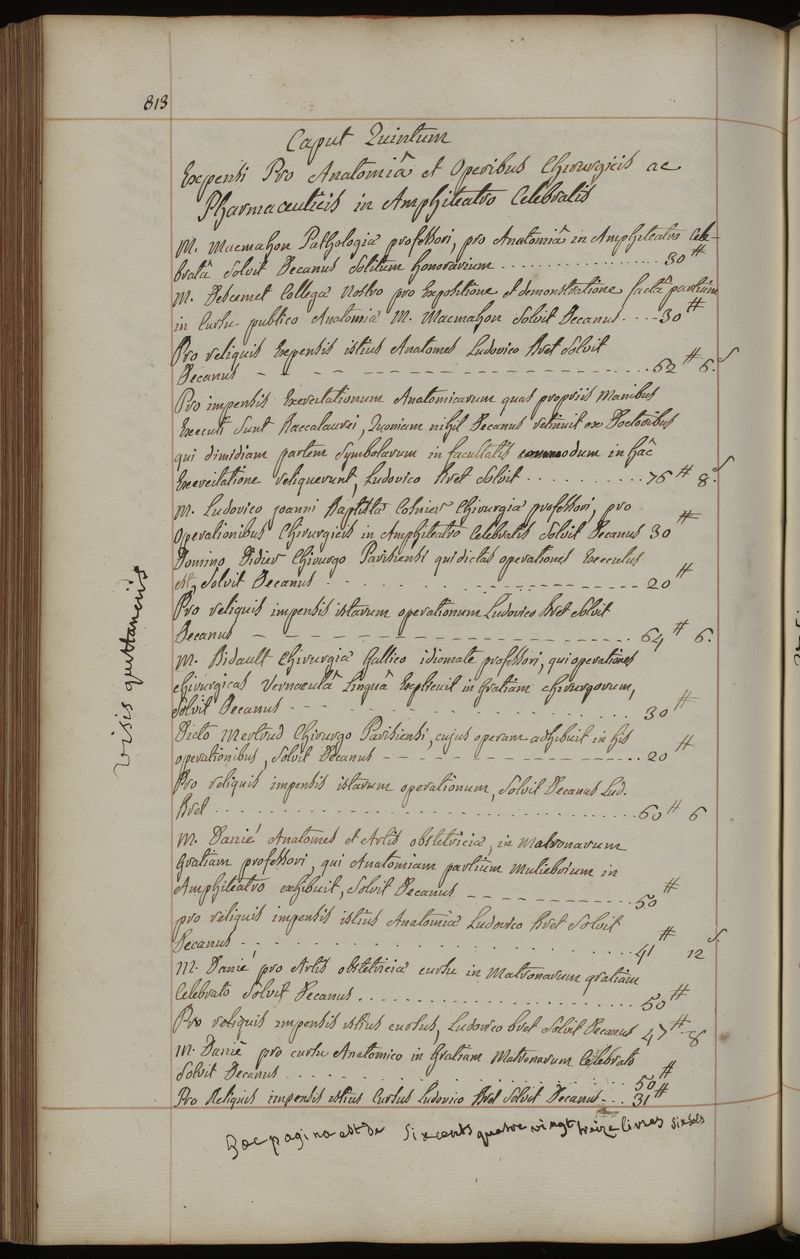 813
Caput Quintum
Expensi Pro Anatomiâ et Operibus Chirurgicis ac
Pharmaceuticis in Amphiteatro Celebratis
M. Macmahon Pathologiæ professori, pro Anatomiâ in Amphiteatro Cele-
bratâ Solvit Decanus Solitum honorarium ................. 30 #
M. Descemet Collegæ Nostro pro Expositione et demonstratione factâ partium
in Cursu publico Anatomiæ M. Macmahon Solvit Decanus .... 30 #
Pro reliquis Expensis istius Anatomes Ludovico Bret Solvit
Decanus ................. 62 # 6. s
Pro impensis Exercitationum Anatomicarum quas propriis Manibus
Executi Sunt Baccalaurei, Quoniam nihil Decanus retinuit ex Doctoribus
qui dimidiam partem Symbolarum in facultatis commodum in hâc
Exercitatione reliquerunt, Ludovico Bret Solvit ........... 76 # 8. s
M. Ludovico joanni Baptistæ Cosnier Chirurgiæ professori, pro
Operationibus Chirurgicis in Amphiteatro Celebratis Solvit Decanus 30 #
Domino Didier Chirurgo Parisiensi qui dictas operationes Executus
est, Solvit Decanus ................. 20 #
Pro reliquis impensis istarum operationum Ludovico Bret Solvit
Decanus ................. 64 # 6.
M. Bidault Chirurgiæ Gallico idiomate professori, qui operationes
chirurgicas Vernaculâ Linguâ Explicuit in Gratiam chirurgorum,
Solvit Decanus ................. 30 #
Dicto Mertrud Chirurgo Parisiensi, cujus operam adhibuit in his
operationibus, Solvit Decanus ................. 20 #
Pro reliquis impensis istarum operationum, Solvit Decanus Lud.
Bret ................. 60 # 6
M. Danié Anatomes et Artis obstetriciæ, in Matronarum
Gratiam professori, qui Anatomiam partium Muliebrium in
Amphiteatro exhibuit, Solvit Decanus ................. 50 #
pro reliquis impensis istius Anatomiæ Ludovico Bret Solvit
Decanus ................. 41 # 12 s.
M. Danié pro Artis obstetriciæ cursu in Matronarum gratiam
Celebrato Solvit Decanus ................. 50 #
Pro reliquis impensis istius cursus, Ludovico bret Solvit Decanus 47 # 8
M. Danié pro cursu Anatomico in Gratiam Matronarum Celebrato
Solvit Decanus ................. 50 #
Pro Reliquis impensis istius Cursus Ludovico Bret Solvit Decanus ... 31 #
hæc pagina est de Six cents quatre vingt treize livres Six sols
Visis quittanciis